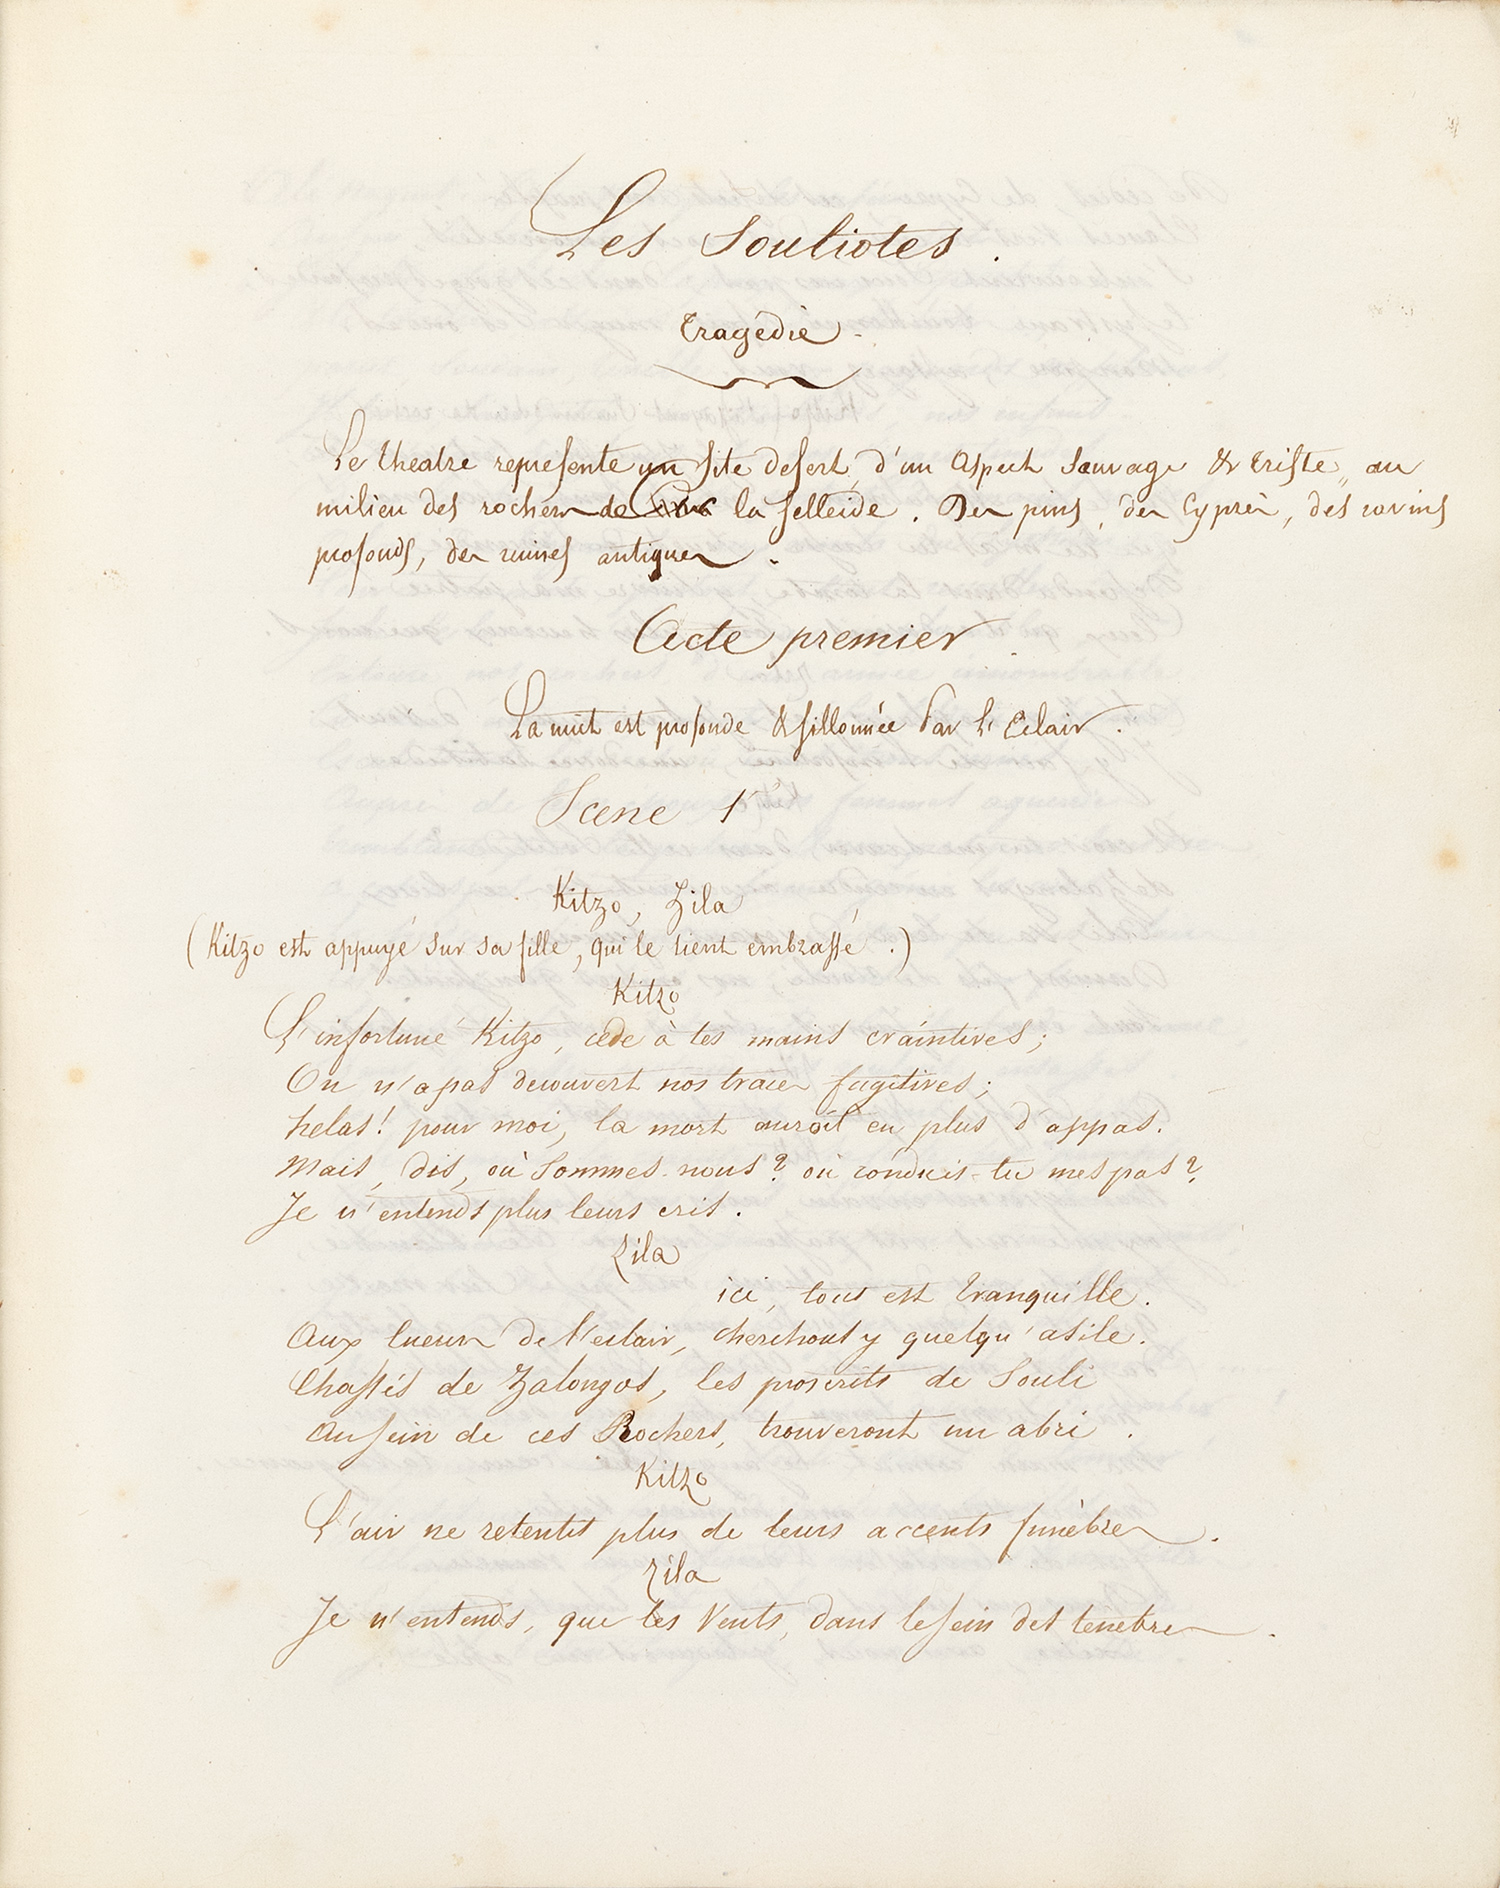 Les Souliotes.
Tragédie -
Le theatre represente un site desert, d'un aspect sauvage & triste, au
milieu des rochers de la Selleide. Des pins, des Cyprès, des ravins
profonds, des ruines antiques.
Acte premier.
La nuit est profonde & sillonnée Par l'Eclair.
Scene 1re
Kitzo, Zila
(Kitzo est appuyé sur sa fille, qui le tient embrassé.)
Kitzo
L'infortuné Kitzo, cede à tes mains craintives;
On n'a pas decouvert nos traces fugitives;
helas! pour moi, la mort auroit eu plus d'appas.
Mais, dis, où Sommes-nous? où conduis-tu mes pas?
Je n'entends plus leurs cris.
Zila
ici, tout est tranquille.
Aux lueurs de l'eclair, cherchons y quelqu'asile.
Chassés de Zalongos, les proscrits de Souli
Au sein de ces Rochers, trouveront un abri.
Kitzo
L'air ne retentit plus de leurs accents funèbres.
Zila
Je n'entends, que les Vents, dans le sein des tenebres.